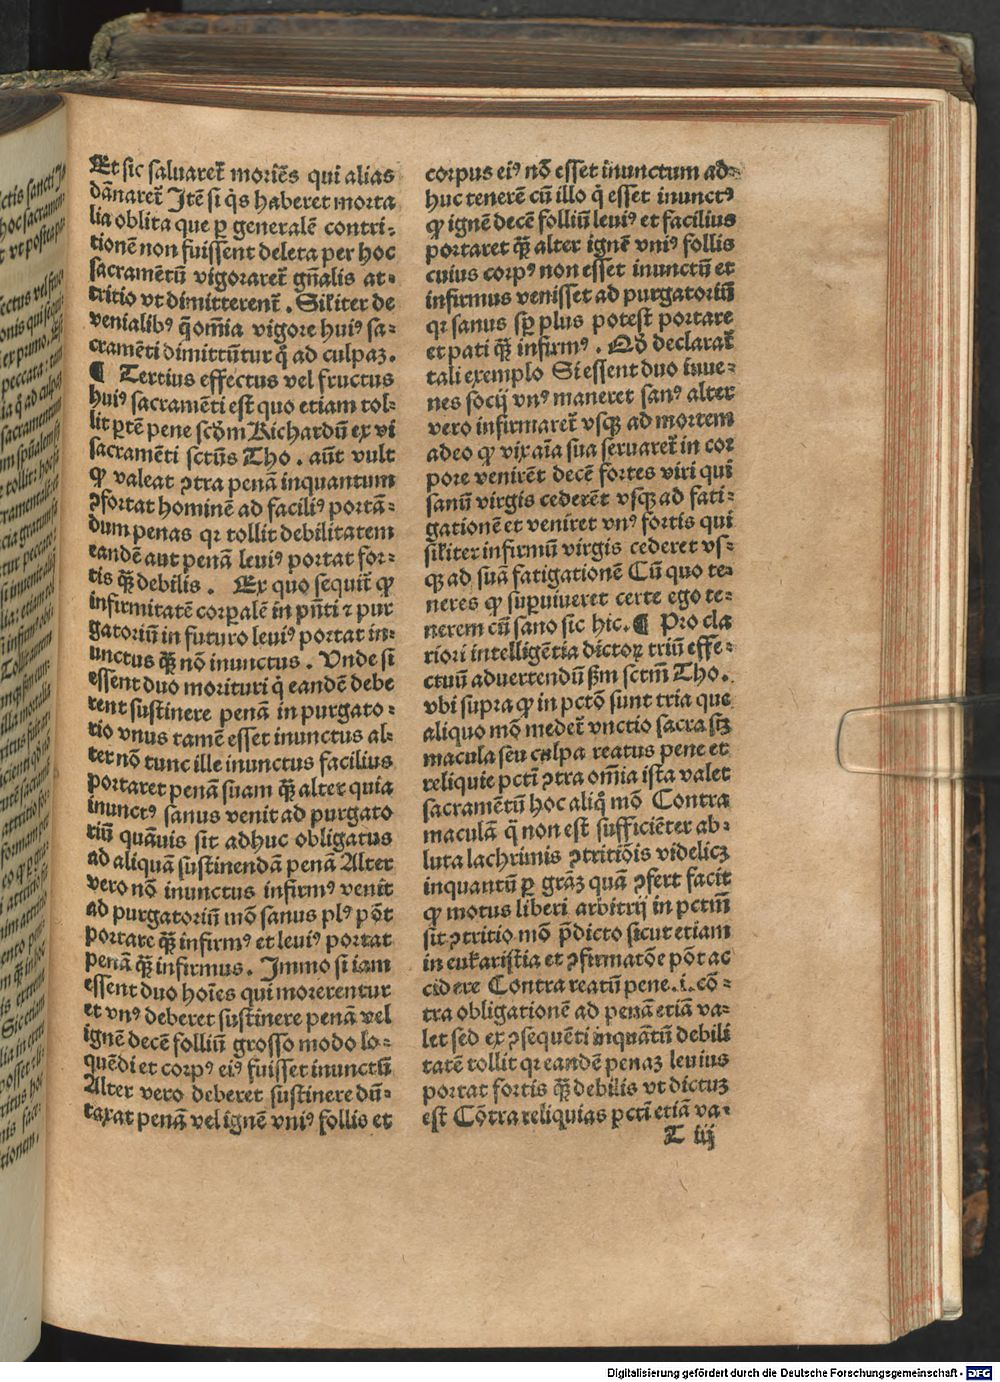 Et sic saluaret᷑ moriēs qui alias
dānaret᷑ Itē si q̇s haberet morta
lia oblita que ꝑ generalē contri⸗
tionē non fuissent deleta per hoc
sacramētū vigoraret᷑ gn̄alis at⸗
tritio vt dimitterent᷑. Sil̓iter de
venialibꝰ q̄ om̄ia vigore huiꝰ sa⸗
cramēti dimittūtur q̇ ad culpaꝫ.
¶ Tertius effectus vel fructus
huiꝰ sacramēti est quo etiam tol⸗
lit ꝑtē pene scḋm Richardū ex vi
sacramēti sctūs Tho. aūt vult
ꝙ valeat ꝯtra penā inquantum
ꝯfortat hominē ad faciliꝰ portā⸗
dum penas qꝛ tollit debilitatem
eandē aut penā leuiꝰ portat for⸗
tis qꝫ̄ debilis. Ex quo sequit᷑ ꝙ
infirmitatē corꝑalē in pn̄ti ⁊ pur
gatoriū in futuro leuiꝰ portat in⸗
unctus qꝫ̄ nō inunctus. Vnde si
essent duo morituri q̇ eandē debe
rent sustinere penā in purgato⸗
rio vnus tamē esset inunctus al⸗
ter nō tunc ille inunctus facilius
portaret penā suam qꝫ̄ alter quia
inunctꝰ sanus venit ad purgato
riū quāuis sit adhuc obligatus
ad aliquā sustinendā penā Alter
vero nō inunctus infirmꝰ venit
ad purgatoriū mō sanus plꝰ pōt
portare qꝫ̄ infirmꝰ et leuiꝰ portat
penā qꝫ̄ infirmus. Immo si iam
essent duo hoīes qui morerentur
et vnꝰ deberet sustinere penā vel
ignē decē folliū grosso modo lo⸗
quēdi et corpꝰ eiꝰ fuisset inunctū
Alter vero deberet sustinere dū⸗
taxat penā vel ignē vniꝰ follis et
corpus eiꝰ nō esset inunctum ad⸗
huc tenerē cū illo q̇ esset inunctꝰ
ꝙ ignē decē folliū leuiꝰ et facilius
portaret qꝫ̄ alter ignē vniꝰ follis
cuius corpꝰ non esset inunctū et
infirmus venisset ad purgatoriū
qꝛ sanus sꝑ plus potest portare
et pati qꝫ̄ infirmꝰ. Qḋ declarat᷑
tali exemplo Si essent duo iuue⸗
nes socij vnꝰ maneret sanꝰ alter
vero infirmaret᷑ vsqꝫ ad mortem
adeo ꝙ vix aīa sua seruaret᷑ in cor
pore venirēt decē fortes viri qui
sanū virgis cederēt vsqꝫ ad fati⸗
gationē et veniret vnꝰ fortis qui
sil̓iter infirmū virgis cederet vs⸗
qꝫ ad suā fatigationē Cū quo te⸗
neres ꝙ suꝑuiueret certe ego te⸗
nerem cū sano sic hic. ¶ Pro cla
riori intelligētia dictoꝝ triū effe⸗
ctuū aduertendū ẜm sctm̄ Tho.
vbi supra ꝙ in pctō sunt tria que
aliquo mō medet᷑ vnctio sacra sꝫ
macula seu culpa reatus pene et
reliquie pcti̅ ꝯtra om̄ia ista valet
sacramētū hoc aliq̇ mō Contra
maculā q̄ non est sufficiēter ab⸗
luta lachrimis ꝯtritiōis videlicꝫ
inquantū ꝑ grāꝫ quā ꝯfert facit
ꝙ motus liberi arbitrij in pctm̄
sit ꝯtritio mō p̄dicto sicut etiam
in eukaristia et ꝯfirmatōe pōt ac
cidere Contra reatū pene.i. cō⸗
tra obligationē ad penā etiā va⸗
let sed ex ꝯsequēti inquātū debili
tatē tollit qꝛ eandē penaꝫ leuius
portat fortis qꝫ̄ debilis vt dictuꝫ
est Cōtra reliquias pcti̅ etiā va⸗
T iij
Digitalisierung gefördert durch die Deutsche Forschungsgemeinschaft - DFG